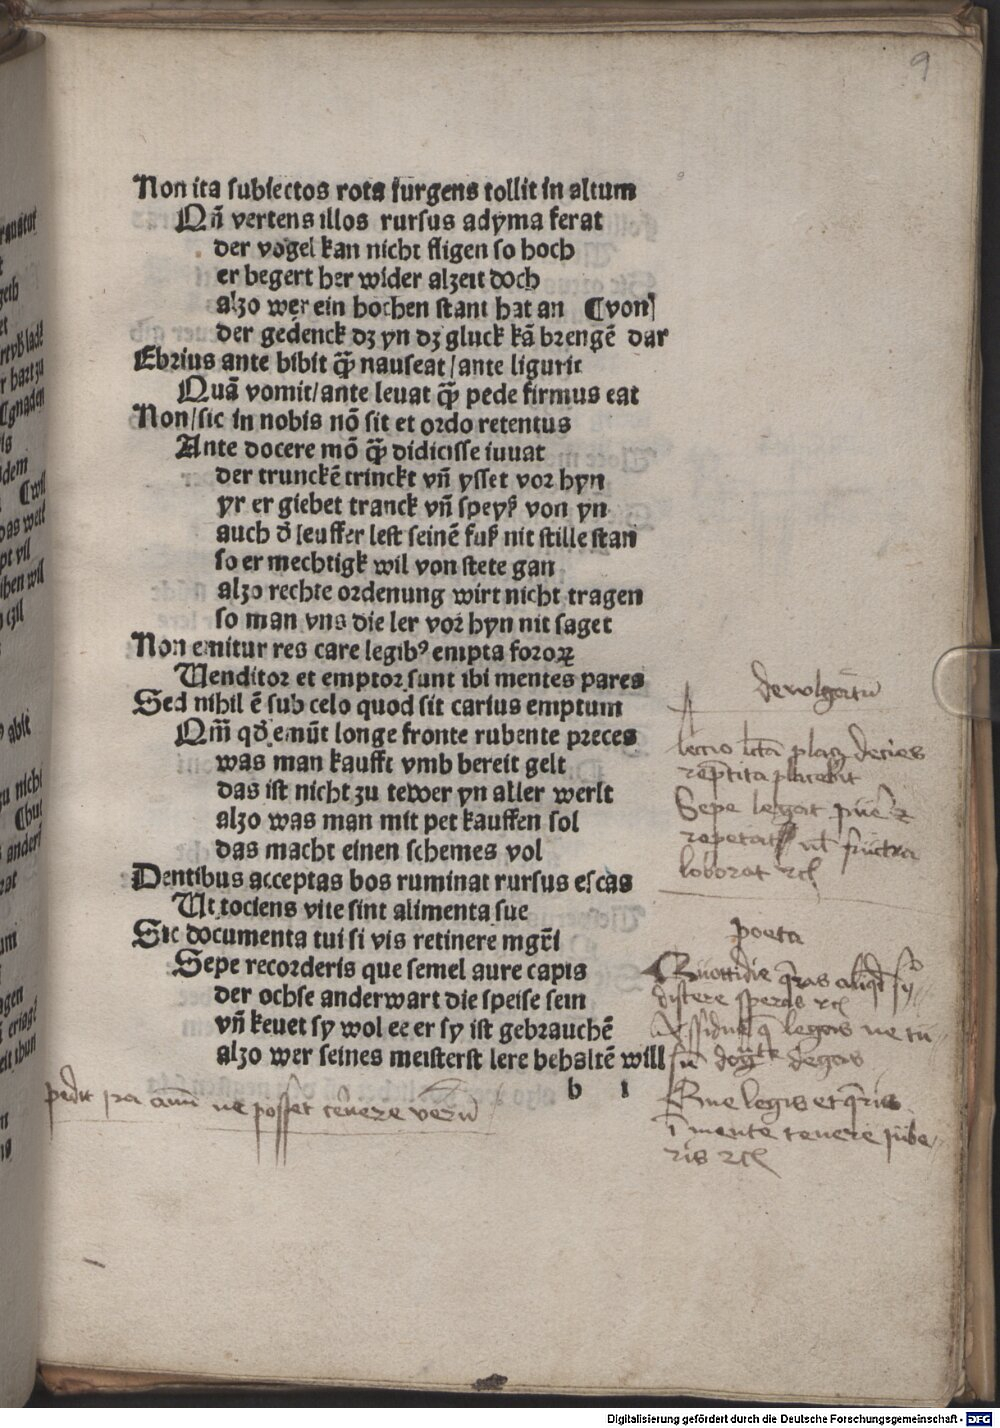 9
Non ita subiectos rota surgens tollit in altum
Qñ vertens illos rursus ad yma ferat
der vogel kan nicht fligen so hoch
er begert her wider alzeit doch
alzo wer ein hochen stant hat an ¶von
der gedenck dz yn dz gluck kā brengē dar
Ebrius ante bibit q̄ȝ nauseat / ante ligurit
Quā vomit / ante leuat q̄ȝ pede firmus eat
Non / sic in nobis nō sit et ordo retentus
Ante docere mō q̄ȝ didicisse iuuat
der trunckē trinckt vñ ysset vor hyn
yr er giebet tranck vñ speyß von yn
auch đ leuffer lest seinē fuß nit stille stan
so er mechtigk wil von stete gan
alzo rechte ordenung wirt nicht tragen
so man vns die ler vor hyn nit saget
Non emitur res care legibꝰ empta fororꝝ
Uenditor et emptor sunt ibi mentes pares
Sed nihil ē sub celo quod sit carius emptum
Qm̄ qd̄ emūt longe fronte rubente preces
was man kaufft vmb bereit gelt
das ist nicht zu tewer yn aller werlt
alzo was man mit pet kauffen sol
das macht einen schemes vol
Dentibus acceptas bos ruminat rursus escas
Ut tociens vite sint alimenta sue
Sic documenta tui si vis retinere mgr̄i
Sepe recorderis que semel aure capis
der ochse anderwart die speise sein
vñ keuet sy wol ee er sy ist gebrauchē
alzo wer seines meisterst lere behaltē will
b 1
lectio lcta placȝ decies
repetita placebit
Sepe legat puer et
repetat ut fructra
loborat rcl
poeta
Quottidie qras aliqd sy
discere speras rcl
Assidue q legas ne tu
degas
Sive legis et qris
ī mente tenere jube
ris rcl
pedit ira aīm ne posset cernere verū